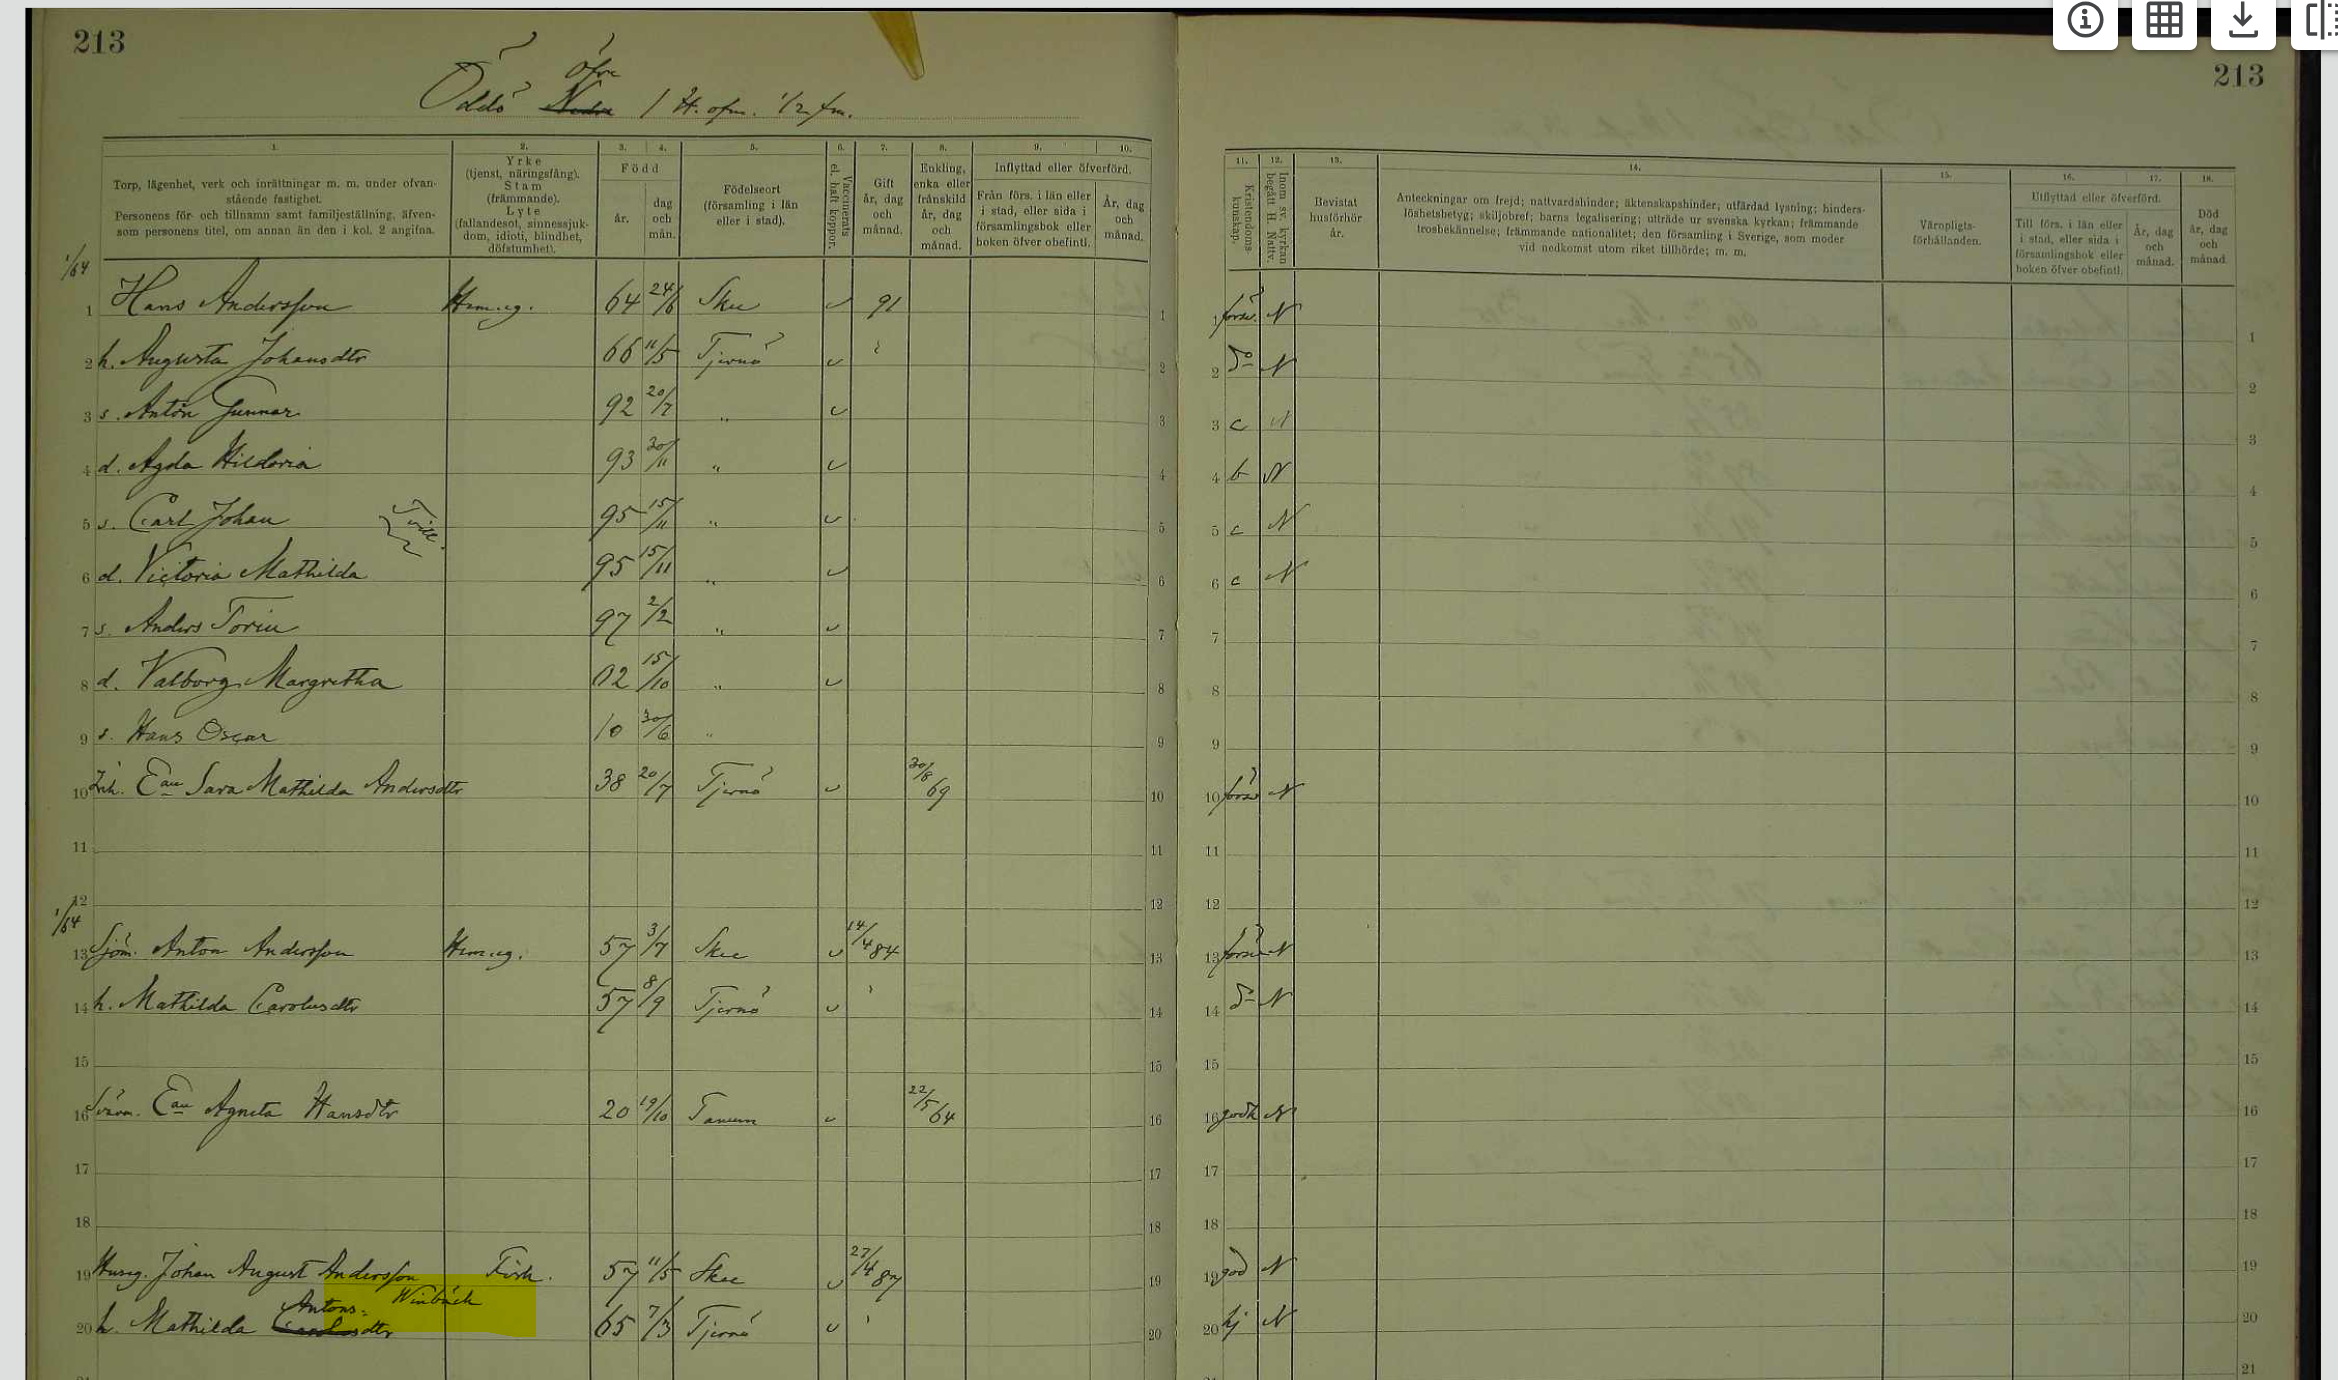 213
213
Öddö Nedra öfre / H. ofm. 1/2 fm.
1. 2. 3. 4. 5. 6. 7. 8. 9. 10.
Torp, lägenhet, verk och inrättningar m. m. under ofvan-
stående fastighet.
Personens för- och tillnamn samt familjeställning, äfven-
som personens titel, om annan än den i kol. 2 angifna.
Yrke
(tjenst, näringsfång).
Stam
(främmande).
Lyte
(fallandesot, sinnessjuk-
dom, idioti, blindhet,
döfstumhet).
Född
år.
dag
och
mån.
Födelseort
(församling i län
eller i stad).
Vaccinerats
el. haft koppor.
Gift
år, dag
och
månad.
Enkling,
enka eller
frånskild
år, dag
och
månad.
Inflyttad eller öfverförd.
Från förs. i län eller
i stad, eller sida i
församlingsbok eller
boken öfver obefintl.
År, dag
och
månad.
11. 12. 13. 14. 15. 16. 17. 18.
Kristendoms-
kunskap.
Inom sv. kyrkan
begått H. Nattv.
Bevistat
husförhör
år.
Anteckningar om frejd; nattvardshinder; äktenskapshinder; utfärdad lysning; hinders-
löshetsbetyg; skiljobref; barns legalisering; utträde ur svenska kyrkan; främmande
trosbekännelse; främmande nationalitet; den församling i Sverige, som moder
vid nedkomst utom riket tillhörde; m. m.
Värnpligts-
förhållanden.
Utflyttad eller öfverförd.
Till förs. i län eller
i stad, eller sida i
församlingsbok eller
boken öfver obefintl.
År, dag
och
månad.
Död
år, dag
och
månad.
1/64
1 Hans Andersson Hem.eg. 64 24/6 Skee 91 1 1 försv. N 1
2 h. Augusta Johansdtr 66 11/5 Tjernö 2 2 do N 2
3 s. Anton Gunnar 92 20/7 " 3 3 c N 3
4 d. Agda Hildoria 93 30/11 " 4 4 b N 4
5 s. Carl Johan Tvill. 95 15/11 " 5 5 c N 5
6 d. Victoria Mathilda 95 15/11 " 6 6 c N 6
7 s. Anders Torin 97 2/2 " 7 7 7
8 d. Valborg Margretha 02 15/10 " 8 8 8
9 s. Hans Oscar 10 30/6 " 9 9 9
10 Inh. Eau Sara Mathilda Andersdtr 38 20/7 Tjernö 30/8 69 10 10 försv N 10
11 11 11 11
12 12 12 12
1/64
13 Sjöm. Anton Andersson Hem.eg. 57 3/7 Skee 14/4 84 13 13 försv N 13
14 h. Mathilda Carolusdtr 57 8/9 Tjernö 14 14 do N 14
15 15 15 15
16 Svärm. Eau Agneta Hansdtr 20 19/10 Tanum 22/5 64 16 16 godk N 16
17 17 17 17
18 18 18 18
19 Huseg. Johan August Andersson Fisk. 57 11/5 Skee 27/4 87 19 19 god N 19
Antons- Winbäck
20 h. Mathilda Carolusdtr 65 7/3 Tjernö 20 20 hj N 20
21